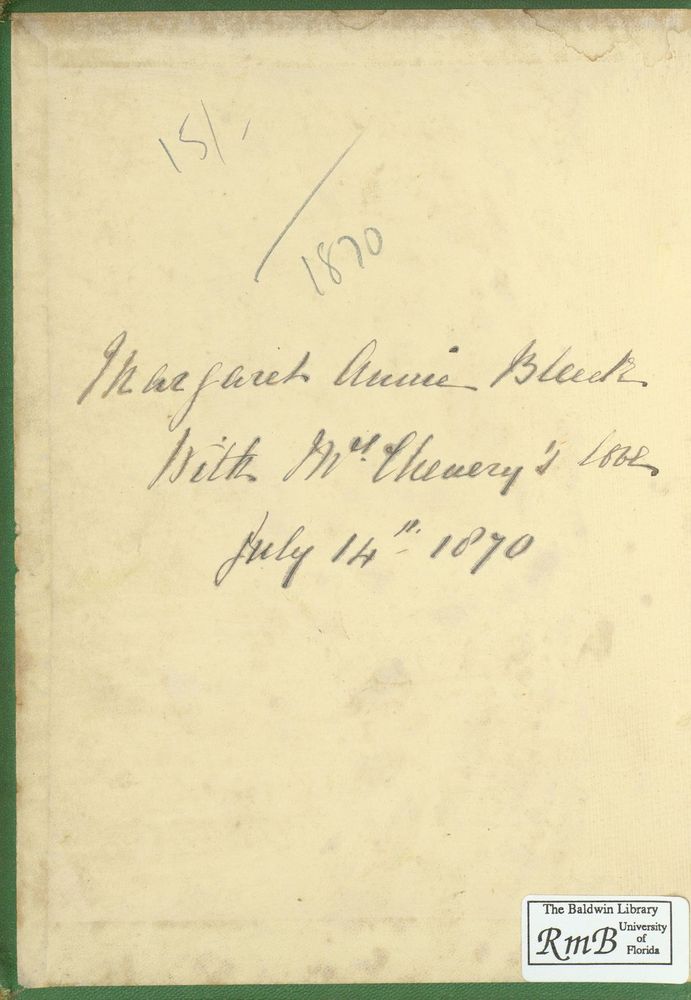 15/.
/
1870
Margaret Annie Black
With Mrs. Chenery's love
July 14th 1870
The Baldwin Library
RmB University of Florida